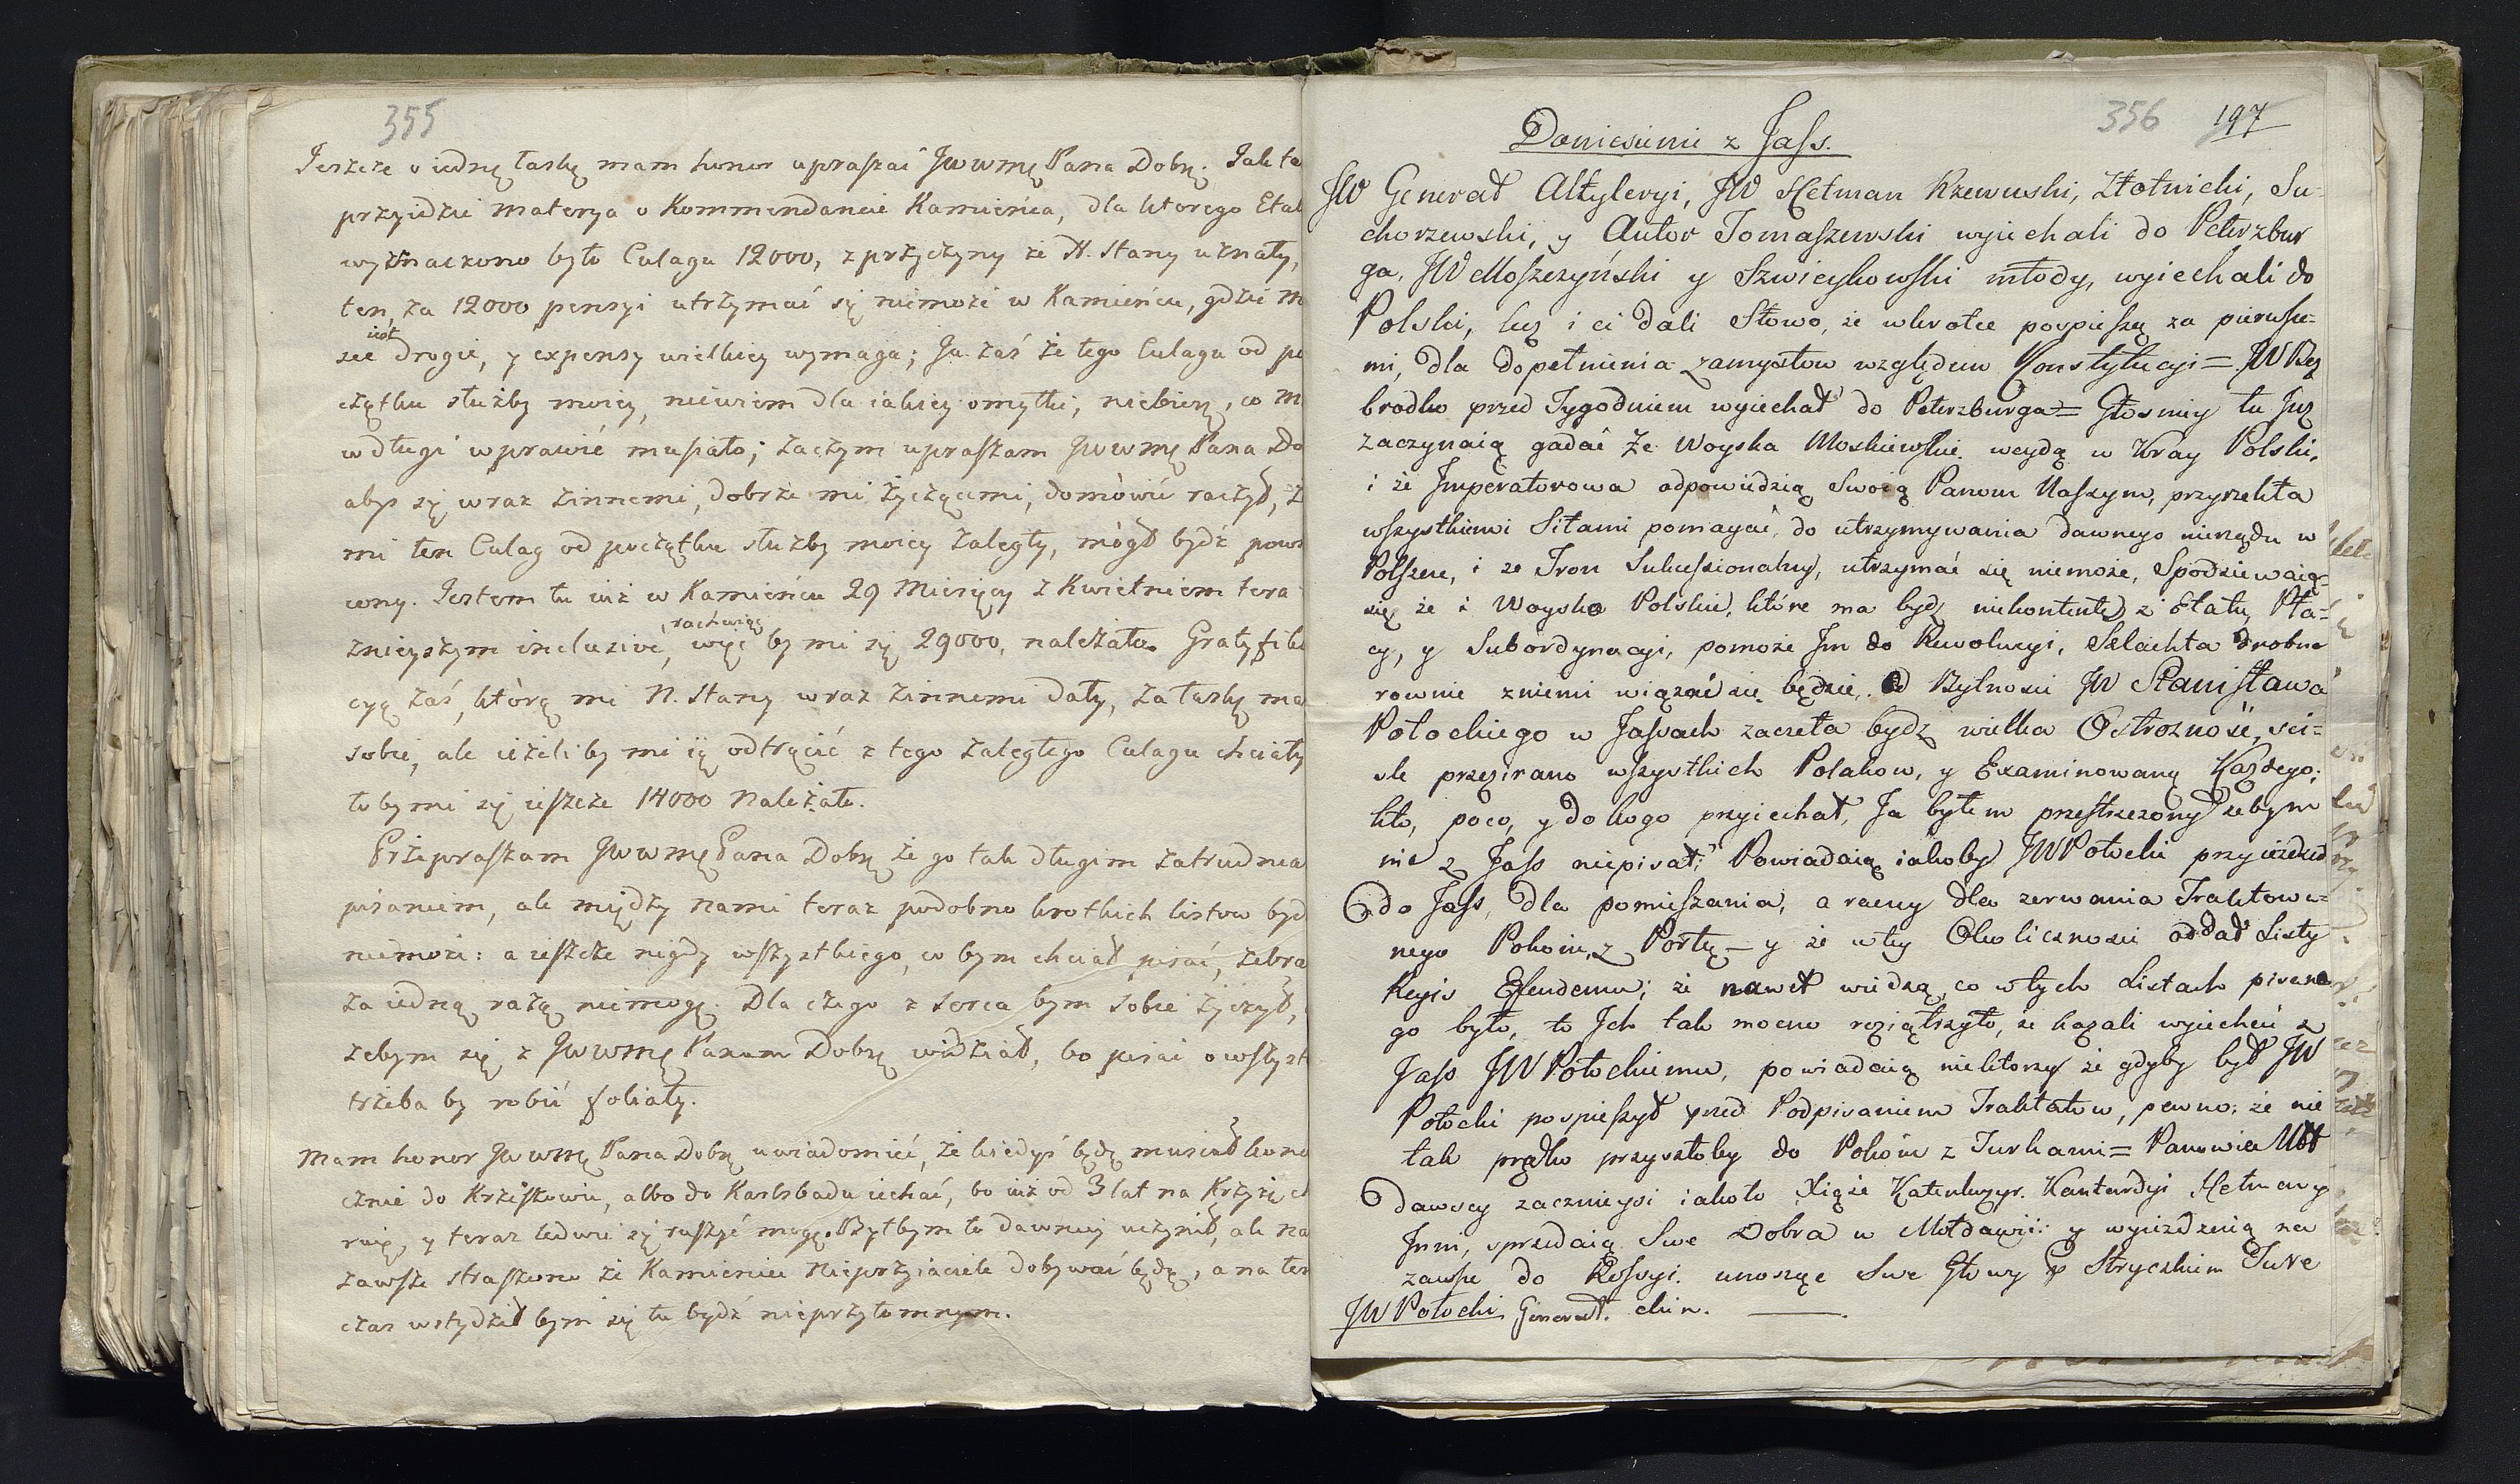 355
Jeszcze o iednę łaskę mam honor upraszać JwwmęPana Dobrę. Jak ta
przyidzie materya o Kommendancie Kamieńca, dla ktorego Etat
wyznaczono było Culagu 12000, z przyczyny że N. Stany uznały,
ten, za 12000 pensyi utrzymać się niemoże w Kamieńcu, gdzie
iest
drogie, y expensy wielkiey wymaga; Ja zaś że tego Culagu od po
czątku służby moiey, niewiem dla iakiey omyłki, niebiorę, co m
w długi wprawić musiało; zaczym upraszam Jwwmę Pana Do
abyś się wraz zinnemi, dobrze mi życzącemi, domówić raczył, ż
mi ten Culag od początku służby moiey zaległy, mógł bydź pow
cony. Jestem tu iuż w Kamieńcu 29 Miesięcy z Kwietniem tera
rachuiąc
znieyszym inclusivè, więc by mi się 29000, należało. Gratyfika
cyą zaś, którą mi N. Stany wraz zinnemi dały, za łaskę ma
sobie, ale ieżeliby mi ią odtrącić z tego zaległego Culagu chciały
toby mi się ieszcze 14000 należało.
Przepraszam Jwwmę Pana Dobrę że go tak długim zatrudnia
pisaniem, ale między nami teraz podobno krotkich listow byd
niemoże: a ieszcze nigdy wszystkiego, co bym chciał pisać, zebra
za iedną razą niemogę. Dla czego z serca bym sobie życzył,
zebym się z Jwwmę Panam Dobrę widział, bo pisać o wszyst
trzeba by robić foliały.
Mam honor Jwwmę Pana Dobrę uwiadomić, że kiedyś będę musiał kone
cznie do Krzeszowic, albo do Karlsbadu iechać, bo iuż od 3 lat na Krzyże ch
ruię, y teraz ledwie się ruszyć mogę. Byłbym to dawniey uczynił, ale na
zawsze straszono że Kamieniec Nieprzyiaciele dobywać będą, a na ten
czas wstydziłbym się tu bydź nieprzytomnym.
356 197
Doniesienie z Jass.
JW Generał Altyleryi, JW Hetman Rzewuski, Złotnicki, Su-
chorzewski, y Autor Tomaszewski wyiechali do Peterzbur
ga, JW Moszczyński y Szwieykowski młody, wyiechali do
Polski, lecz i ci dali Słowo, że wkrotce pospieszą za pierwsze-
mi, dla dopełnienia zamysłow względem Konstytucyi = JW Bez
brodko przed Tygodniem wyiechał do Peterzburga = Głosniey tu Juz
zaczynaią gadać Ze Woyska Moskiewskie weydą w Kray Polski,
i że Jmperatorowa odpowiedzią Swoią Panom Naszym, przyrzekła
wszystkiemi Siłami pomagać, do utrzymywania dawnego nierządu w
Polszcze, i ze Tron Sukcessionalny, utrzymać się niemoże, Spodziewaią
się że i Woysko Polskie, które ma bydz niekontente z Etatu, Pła-
cy, y Subordynacyi, pomoże Jm do Rewolucyi, Szlachta drobna
rownie zniemi wiązać się będzie, Od Bytnosci JW Stanisława
Potockiego w Jassach zaczeła bydz wielka Ostrozność, sci-
sle przezirano wszystkich Polakow, y Examinowaną Każdego;
kto, poco, y do kogo przyiechał, Ja byłem przestrzezony zebym
nic z Jass niepisał; Powiadaią iakoby JW Potocki przyiezdzał
do Jass, dla pomieszania, a raczey dla zerwania Traktowa-
nego Pokoiu, z Portą – y że wtey Okolicznosci oddał Listy
Reyis Efendemu; że nawet wiedzą, co wtych Listach pisane
go było, to Jch tak mocno roziątrzyło, że kazali wyiecheć z
Jass JW Potockiemu, powiadaią niektorzy że gdyby był JW
Potocki pospieszył przed Podpisaniem Traktatow, pewno; że nie
tak prędko przyszłoby do Pokoiu z Turkami = Panowie Mołł
dawscy zacznieysi iakoto Xiąże Kantakuzyn. Kantardzi Hetmany
Jnni, sprzedaią Swe Dobra w Mołdawii: y wyiezdzaią na
zawsze do Rossyi. unosząc Swe Głowy p Stryczkiem Ture
JW Potocki Generał. ckim. ———